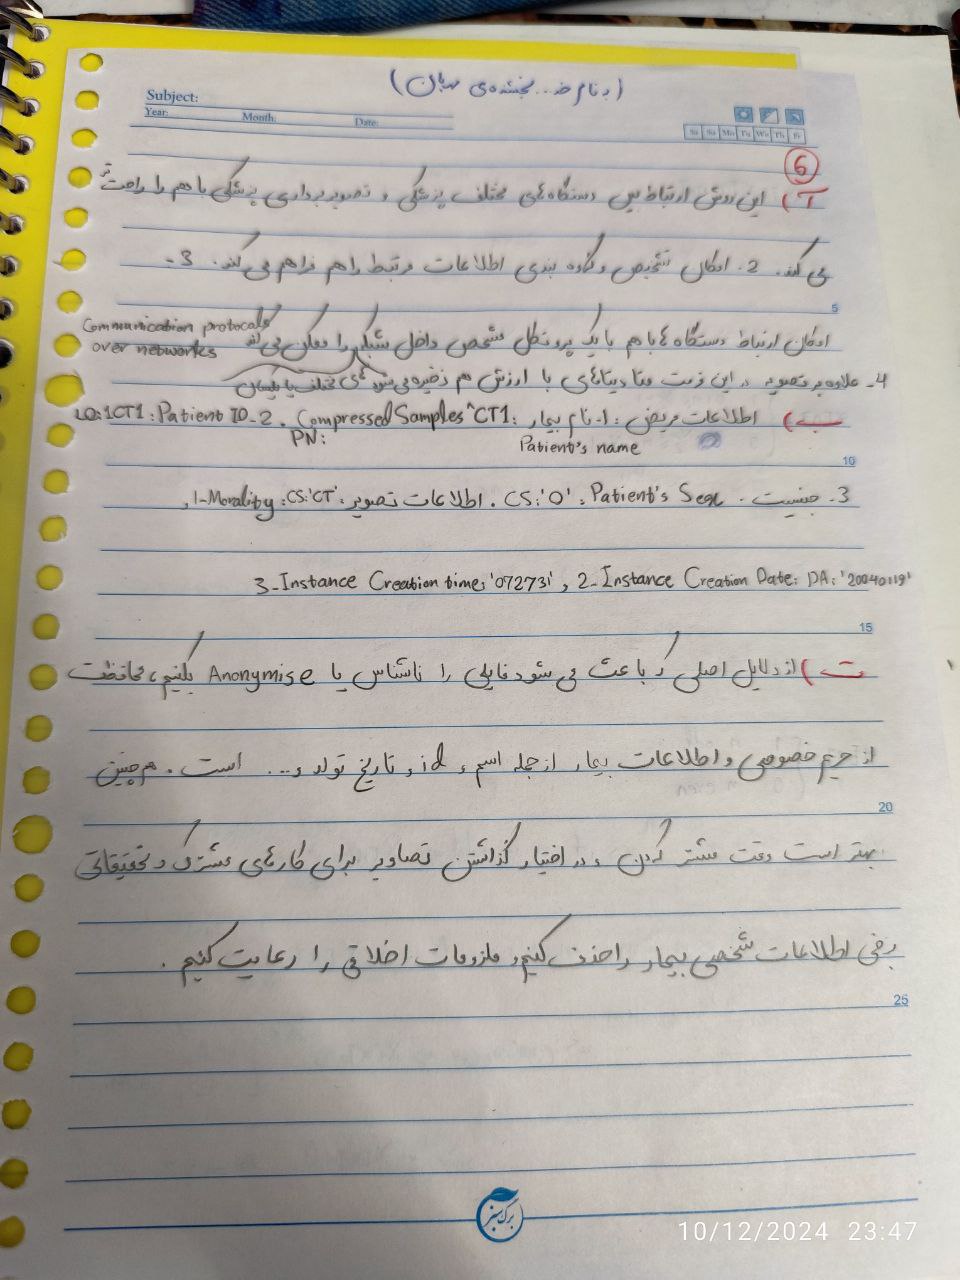 (به نام خد... بخشنده‌ی مهربان)
Subject:
Year: Month: Date:
Sa Su Mo Tu We Th Fr
6
آ) این روش ارتباط بین دستگاه‌های مختلف پزشکی و تصویربرداری پزشکی با هم را راحت‌تر
می کند. 2. امکان تشخیص و گروه بندی اطلاعات مرتبط را هم فراهم می کند. 3-
5
امکان ارتباط دستگاه ها با هم با یک پروتکل مشخص داخل شبکه‌ را ممکن می کند
Communication protocols
over networks
های مختلف یا یکسان
4- علاوه بر تصویر در این فرمت متا دیتاهای با ارزش هم ذخیره می شود
ب) اطلاعات مریض: 1- نام بیمار: Compressed Samples^CT1 . 2-Patient ID: LO:1CT1
PN:
Patient's name
10
3- جنسیت. Patient's Sex: CS:'O' . اطلاعات تصویر: 1-Morality: CS:'CT' ,
2-Instance Creation Date: DA:'20040119' , 3-Instance Creation time: '072731'
15
ت) از دلایل اصلی که باعث می شود فایلی را ناشناس یا Anonymise بکنیم، محافظت
از حریم خصوصی و اطلاعات بیمار از جمله اسم، id، تاریخ تولد و... است. هم چنین
20
بهتر است وقت منتشر کردن و در اختیار گذاشتن تصاویر برای کارهای مشترک و تحقیقاتی
برخی اطلاعات شخصی بیمار را حذف کنیم و ملزومات اخلاقی را رعایت کنیم.
25
برگ سبز
10/12/2024 23:47